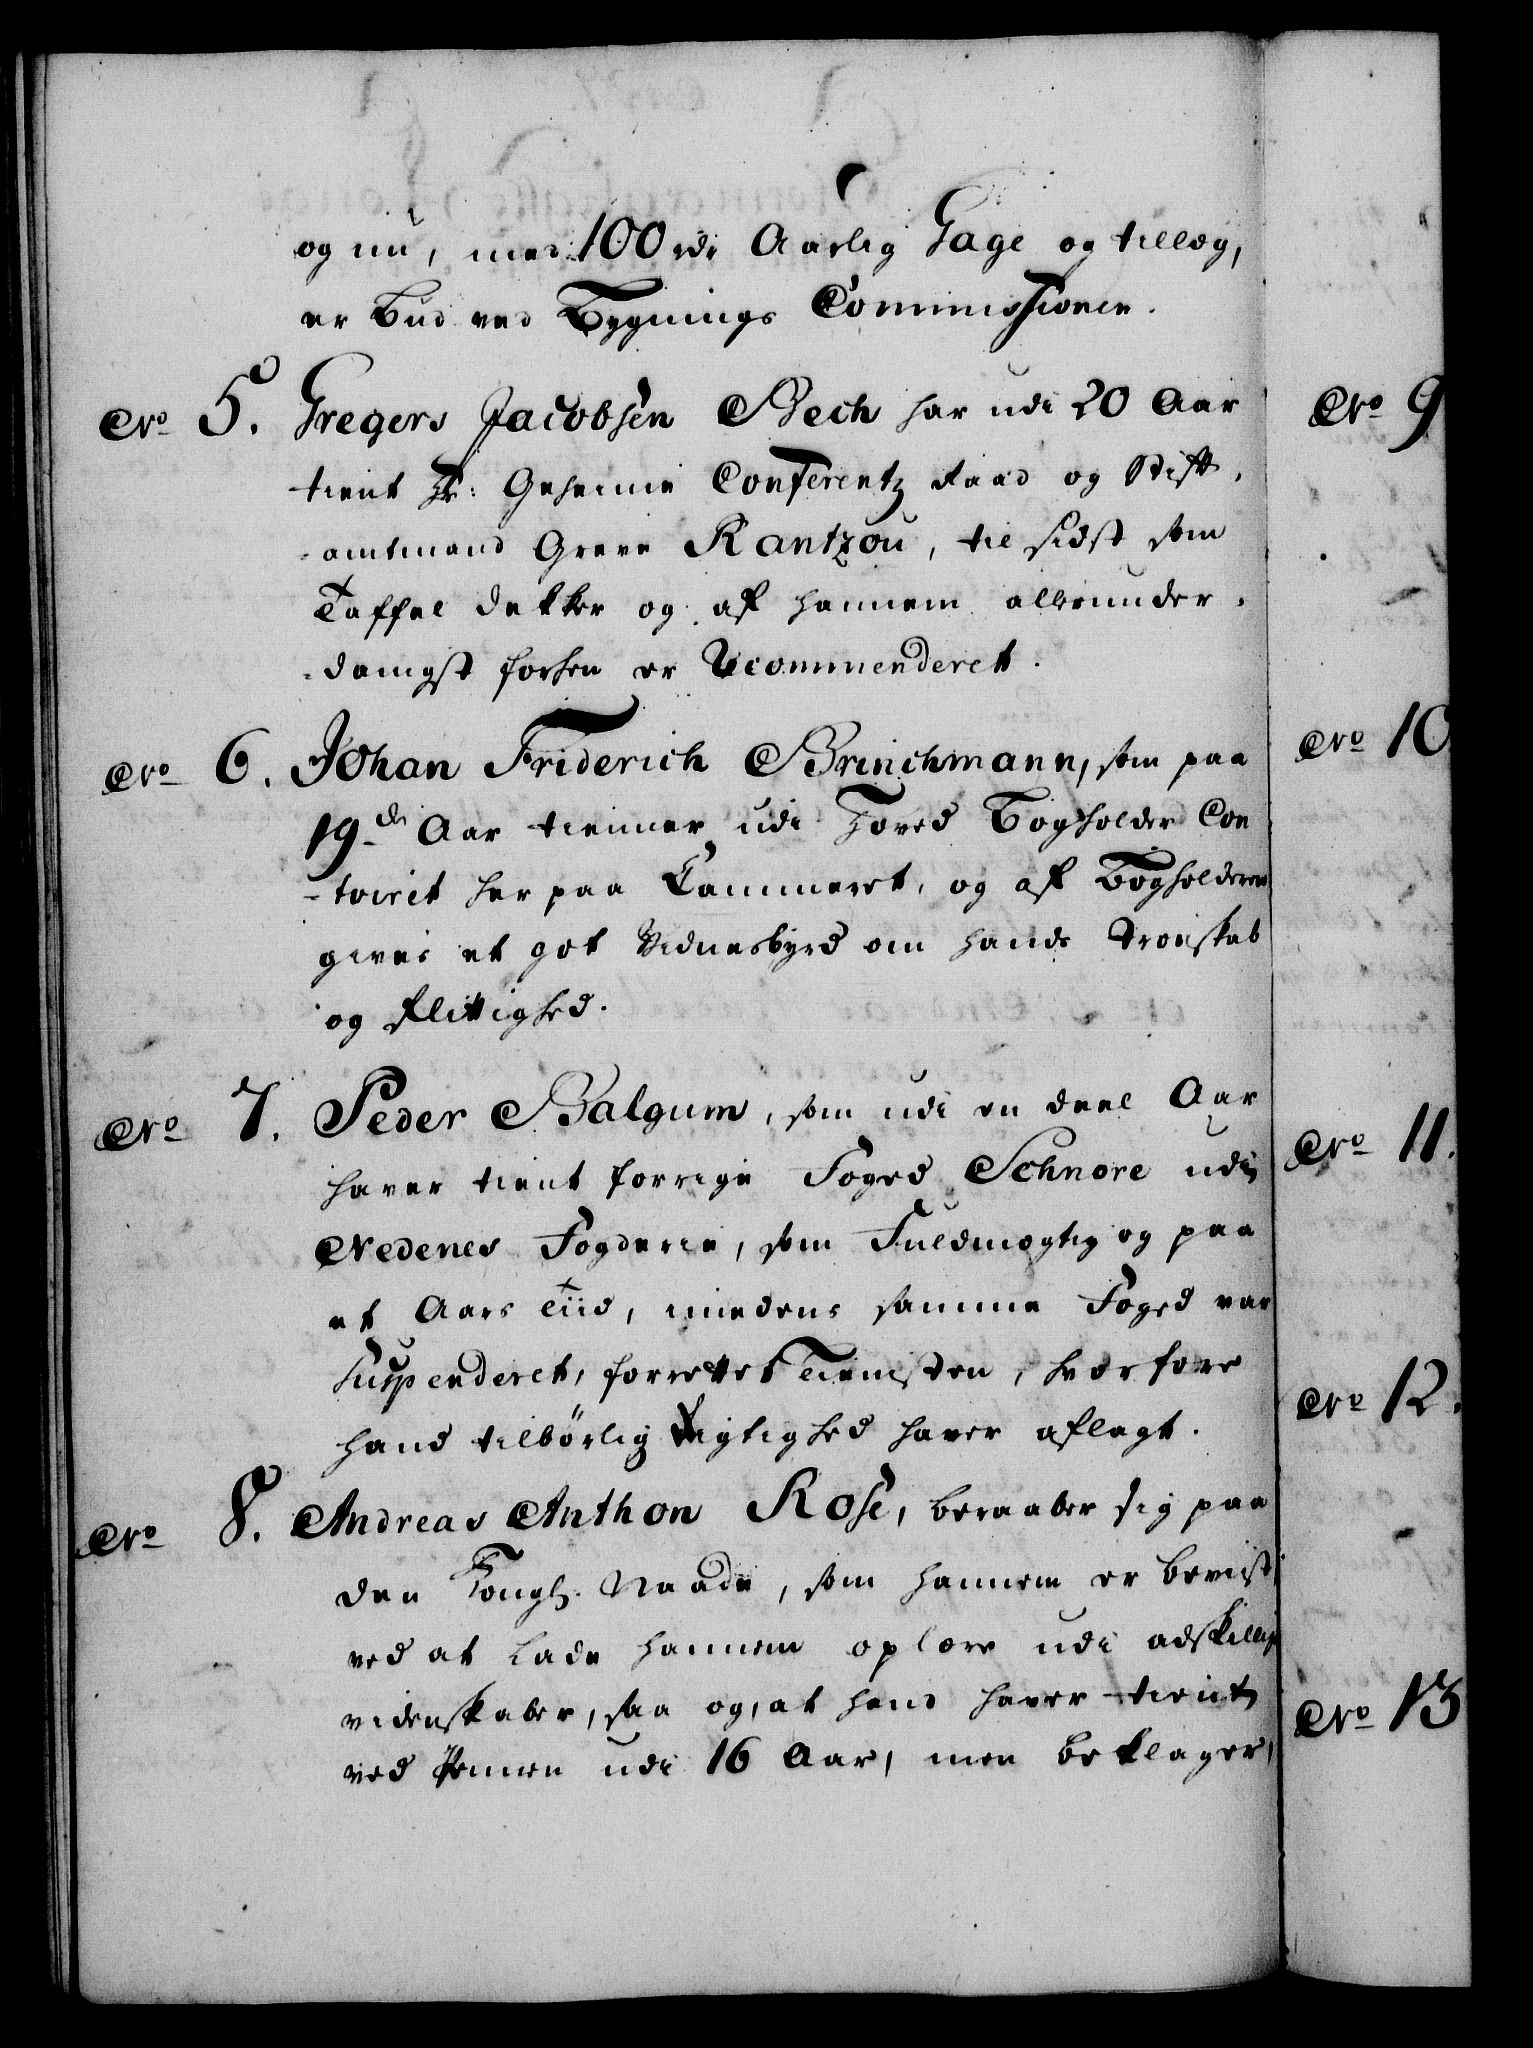 og nu, med 100 rdr Aarlig Gage og tillæg,
er Bud ved Bygnings Commissionen.
No 5. Gregers Jacobsen Bech har udi 20 Aar
tient Hr: Geheime Conferentz Raad og Stift-
-amtmand Greve Rantzou, til sidst som
Taffel dekker og af hannem allerunder-
-danigst hersen er Recommenderet.
No 6. Johan Friderich Brinchmann, som paa
19de Aar tienner udi Hoved Bogholder Con
-toiret her paa Cammeret, og af Bogholderen
gives et got Vidnesbyrd om hands Troeskab
og flittighed.
No 7. Peder Balgum, som udi en deel Aar
haver tient forrige Foged Schnore udi
Nedenes Fogderie, som Fuldmægtig og paa
et Aars Tiid, imedens samme Foged var
Suspenderet, forrettet Tienisten, hvorfore
hand tilbörlig Rigtighed haver aflagt.
No 8. Andreas Anthon Rose, beraaber sig paa
den Kongl. Naade, som hannem er beviist
ved at lade hannem oplære udi adskillige
videnskaber, saa og, at hand haver tient
ved Pennen udi 16 Aar, men beklager,
No 9
No 10
No 11.
No 12.
No 13